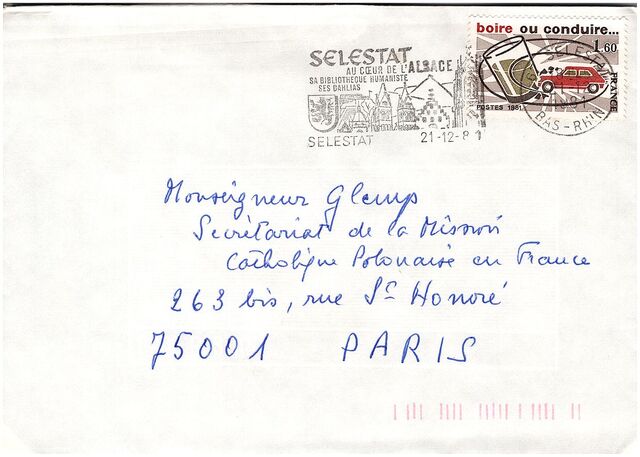 boire ou conduire...
1,60
FRANCE
POSTES 1981
SELESTAT
BAS-RHIN
1981
SELESTAT
AU CŒUR DE L'ALSACE
SA BIBLIOTHEQUE HUMANISTE
SES DAHLIAS
SELESTAT
21-12-81
Monseigneur Glemp
Secrétariat de la Mission
Catholique Polonaise en France
263 bis, rue St Honoré
75001 PARIS